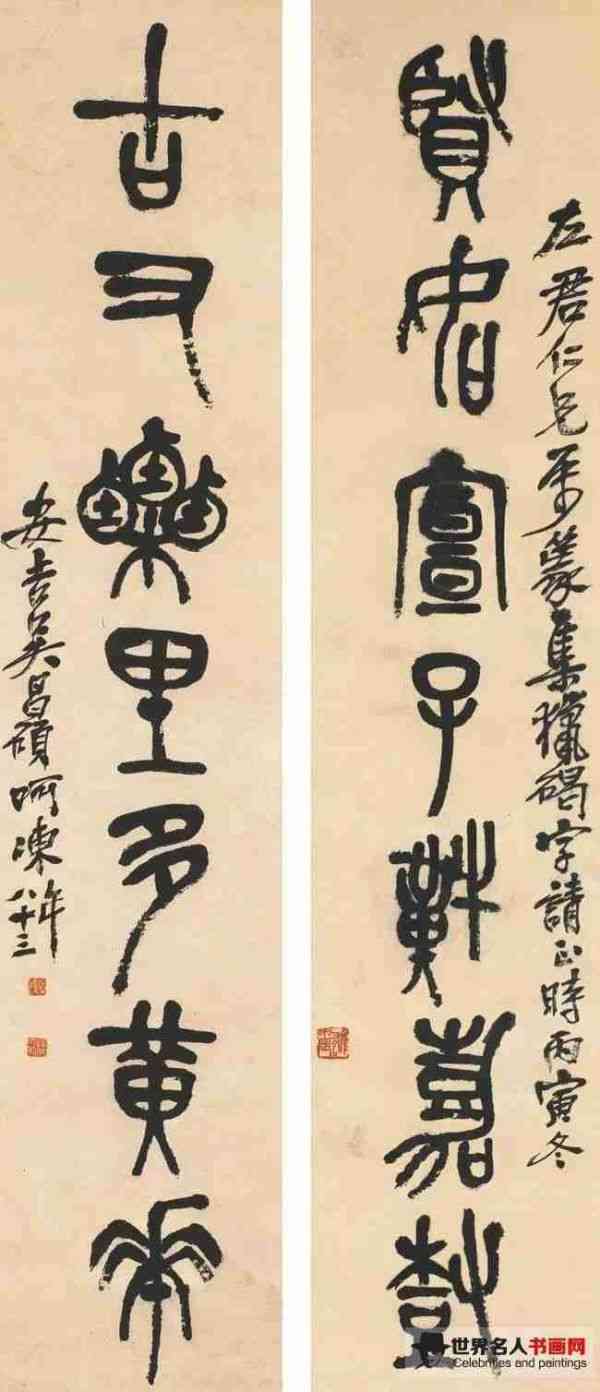 左君仁兄屬篆集獵碣字請正時丙寅冬
賢宣子嘉樹
古又樂里多黃華
安吉吳昌碩呵凍年八十三
世界名人书画网
Celebrities and paintings